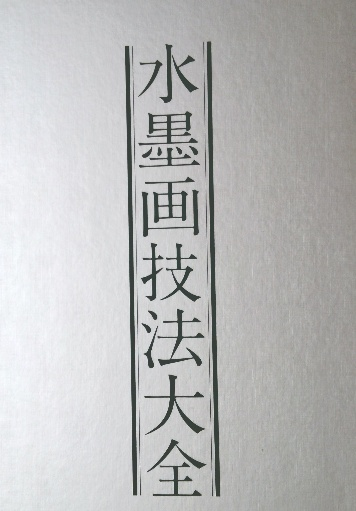 水墨画技法大全